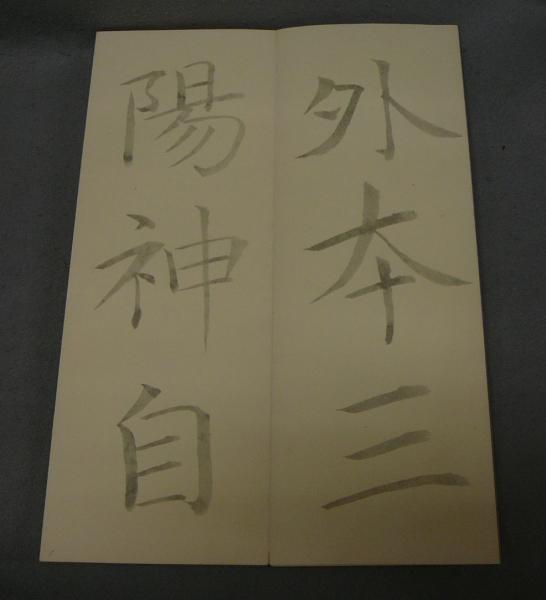 外本三
陽神自